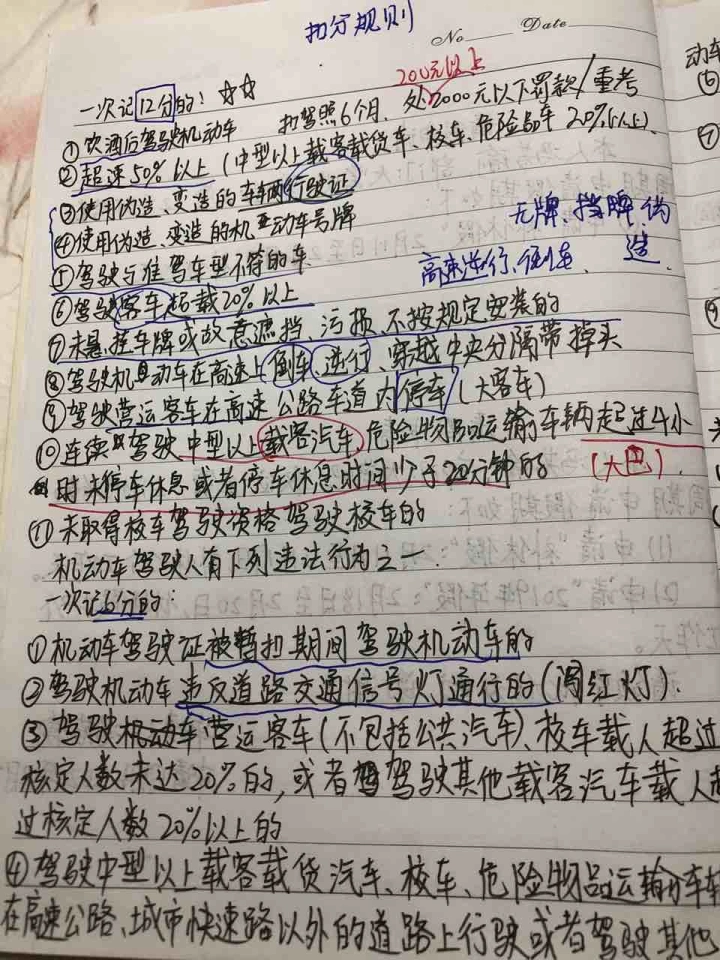 扣分规则
No Date
200元以上
一次记12分的：☆☆
扣驾照6个月.处2000元以下罚款/重考
①饮酒后驾驶机动车
②超速50%以上（中型以上载客载货车、校车、危险品车20%以上）.
③使用伪造、变造的车辆行驶证
④使用伪造、变造的机动车号牌
无牌、挡牌、伪造.
⑤驾驶与准驾车型不符的车.
高速逆行、倒车.
⑥驾驶客车超载20%以上
⑦未悬挂车牌或故意遮挡、污损、不按规定安装的
⑧驾驶机动车在高速上倒车、逆行、穿越中央分隔带掉头
⑨驾驶营运客车在高速公路车道内停车（大客车）
⑩连续驾驶中型以上载客汽车、危险物品运输车辆超过4小
时未停车休息或者停车休息时间少于20分钟的
（大巴）.
⑪未取得校车驾驶资格驾驶校车的
机动车驾驶人有下列违法行为之一.
一次记6分的：
①机动车驾驶证被暂扣期间驾驶机动车的
②驾驶机动车违反道路交通信号灯通行的（闯红灯）.
③驾驶机动车营运客车（不包括公共汽车）、校车载人超过
核定人数未达20%的，或者驾驶其他载客汽车载人超
过核定人数20%以上的
④驾驶中型以上载客载货汽车、校车、危险物品运输车辆
在高速公路、城市快速路以外的道路上行驶或者驾驶其他
动车
⑥
⑦
⑨